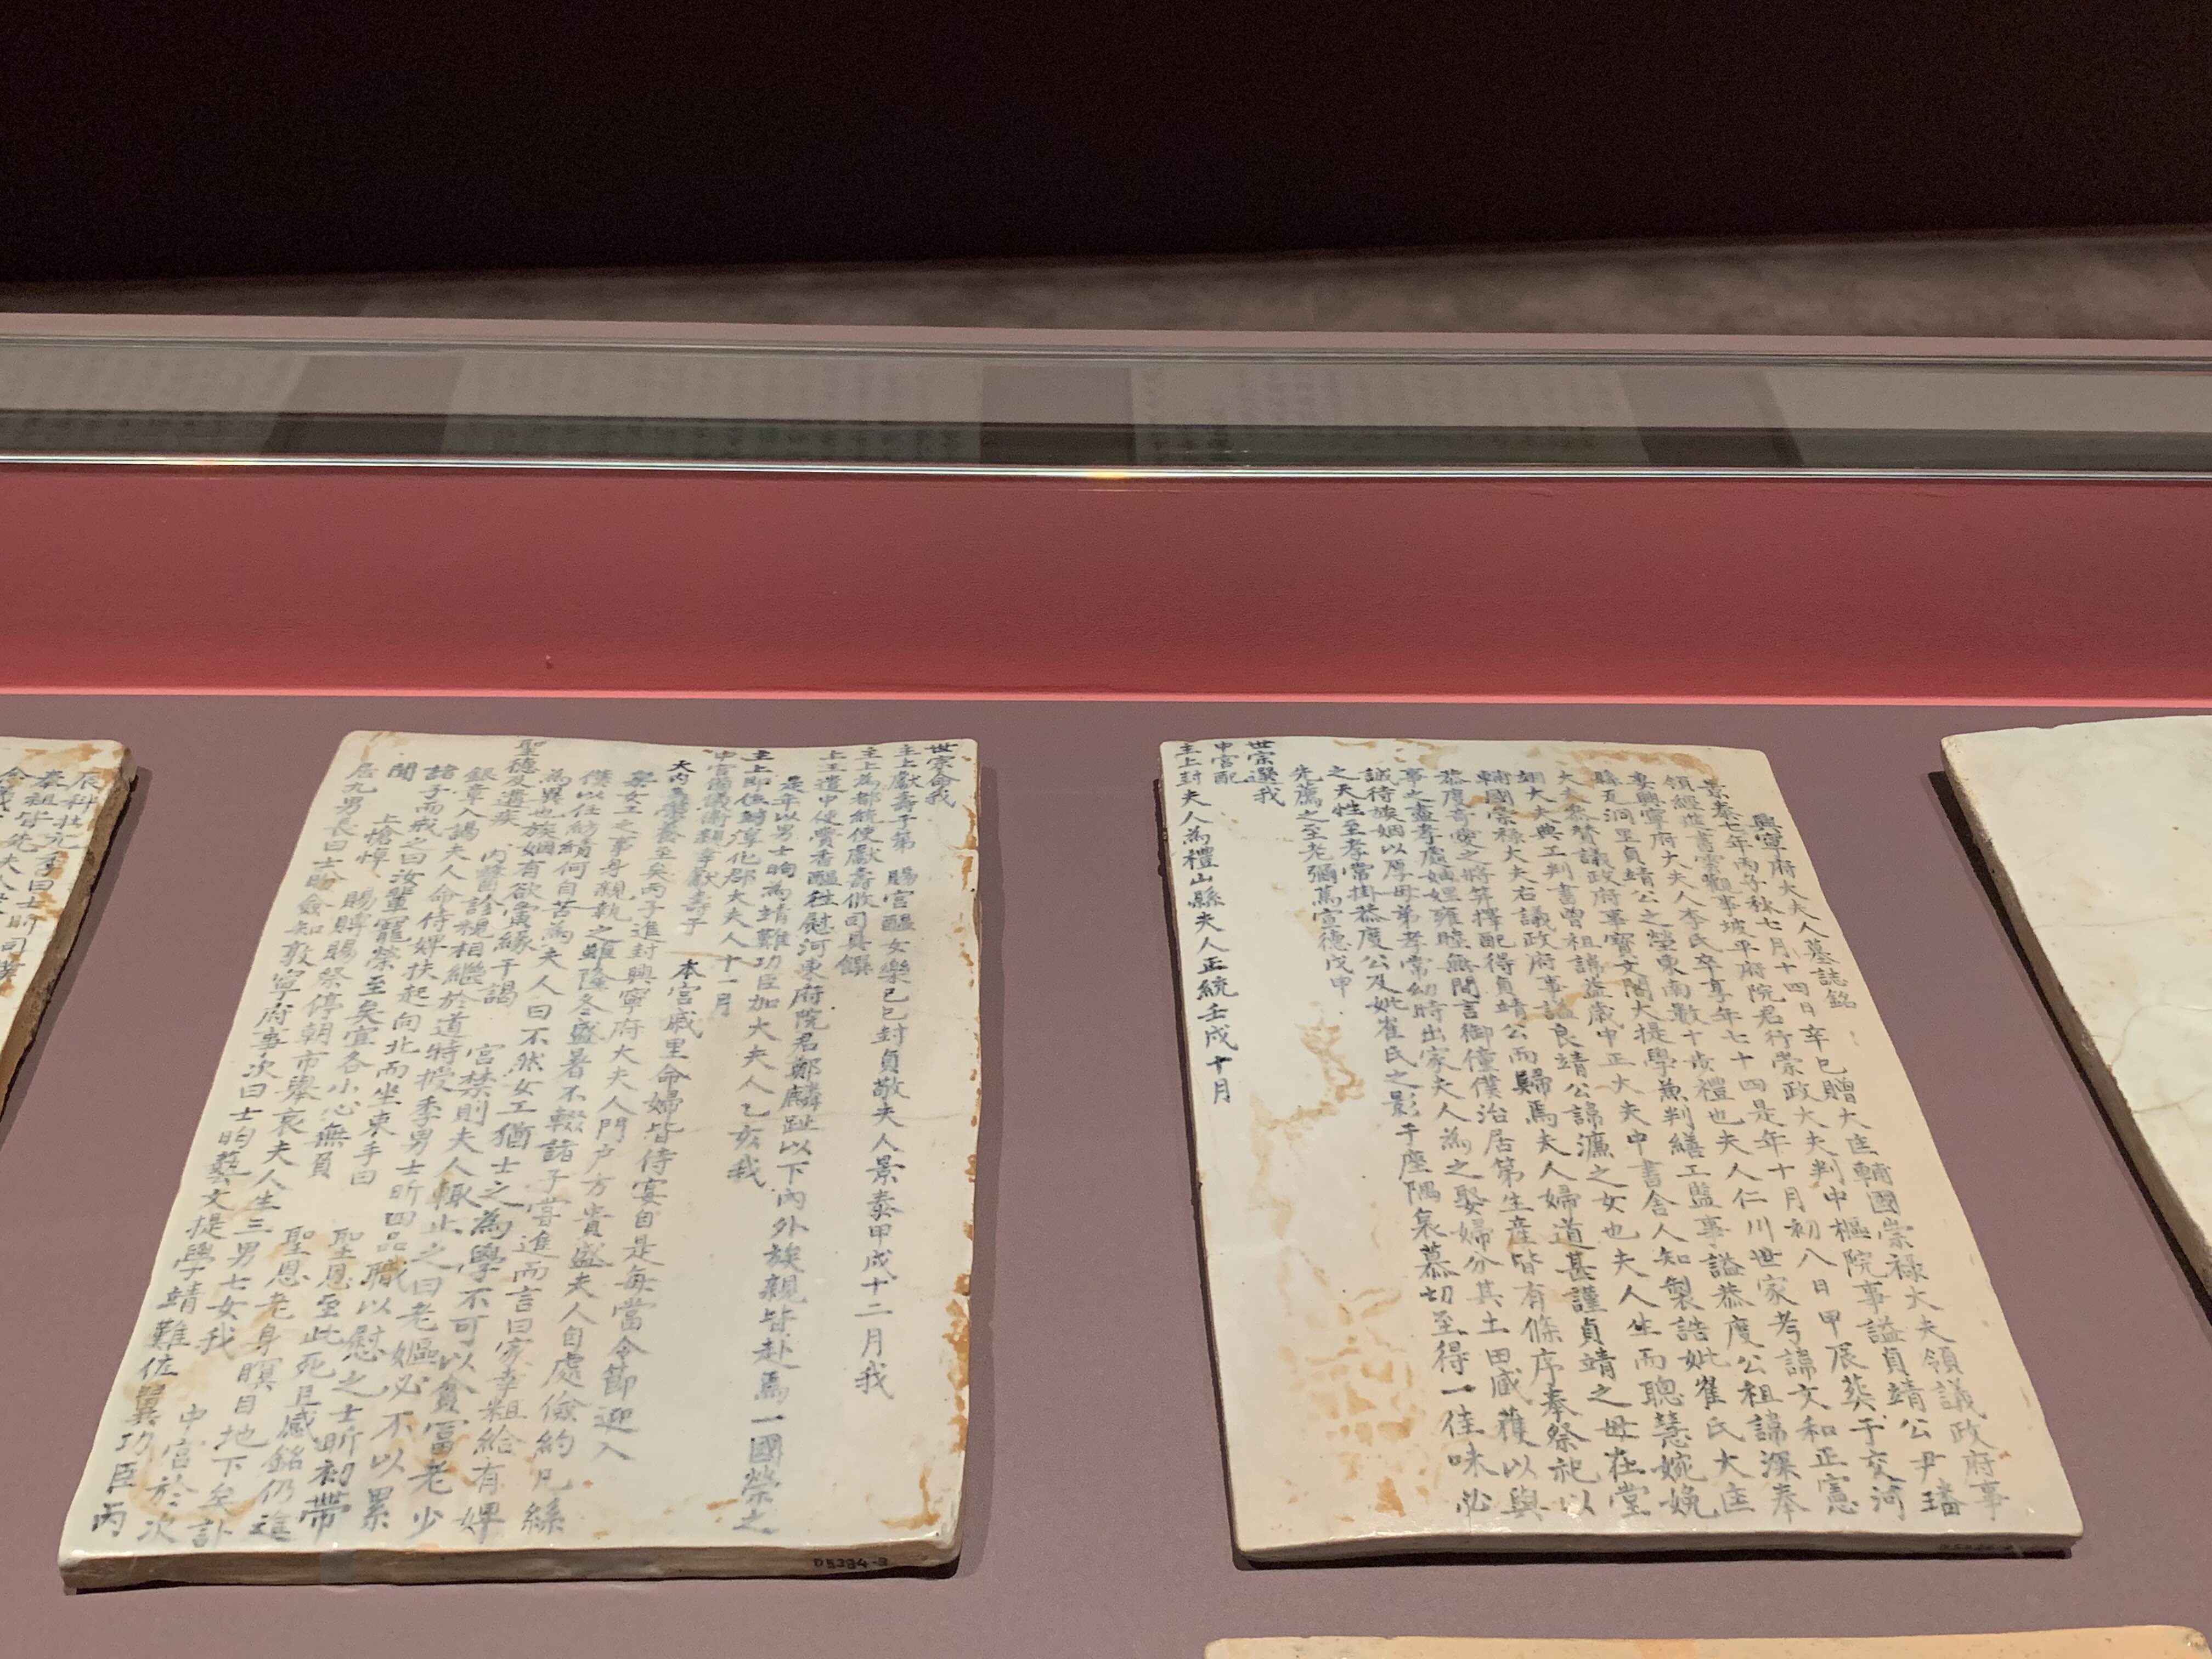 興寧府大夫人墓誌銘
景泰七年丙子秋七月十四日辛巳贈大匡輔國崇祿大夫領議政府事
領經筵書雲觀事坡平府院君行崇政大夫判中樞院事謚貞靖公尹璠
妻興寧府大夫人李氏卒享年七十四是年十月初八日甲辰葬于交河
縣瓦洞里貞靖公之塋東南數十步禮也夫人仁川世家考諱文和正憲
大夫參贊議政府事寶文閣大提學兼判繕工監事謚恭度公祖諱深奉
翊大夫典工判書曾祖諱益歲中正大夫中書舍人知製誥妣崔氏大匡
輔國崇祿大夫右議政府事謚良靖公諱濂之女也夫人生而聰慧婉娩
恭度奇愛之將笄擇配得貞靖公而歸焉夫人婦道甚謹貞靖之母在堂
事之盡孝處妯娌雍睦無間言御僮僕治居第生產皆有條序奉祭祀以
誠待族姻以厚母弟孝常幼時出家夫人為之娶婦分其土田臧獲以與
之天性至孝常掛恭度公及妣崔氏之影于座隅哀慕切至得一佳味必
先薦之至老彌篤宣德戊申
世宗選我
中宮配
主上封夫人為禮山縣夫人正統壬戌十月
世宗命我
主上獻壽于第 賜宮醞女樂己巳封貞敬夫人景泰甲戌十二月我
主上為都統使獻壽攸司具饌
上王遣中使賫香醞往慰河東府院君鄭麟趾以下內外族親皆赴焉一國榮之
是年以男士昀為靖難功臣加大夫人乙亥我
主上即位歸淳化郡大夫人十一月
中宮備議衛親幸獻壽于 本宮戚里命婦皆侍宴自是每當令節迎入
大內 養至矣丙子進封興寧府大夫人門戶方貴盛夫人自處儉約凡絲
枲女工之事身親執之雖隆冬盛暑不輟諸子嘗進而言曰家幸粗給有婢
僕以任紡績何自苦為夫人曰不然女工猶士之為學不可以貧富老少
為異也族姻有欲夤緣干謁 宮禁則夫人輒止之曰老嫗必不以累
聖德及遘疾 內醫診視相繼於道特授季男士昕四品職以慰之士昕初帶
銀章入謁夫人命侍婢扶起向北而坐束手曰 聖恩至此死且感銘仍進
諸子而戒之曰汝輩寵榮至矣宜各小心無負 聖恩老身瞑目地下矣訃
聞 上愴悼 賜賻賜祭停朝市舉哀夫人生三男七女我 中宮於次
居九男長曰士昐僉知敦寧府事次曰士昀藝文提學靖難佐翼功臣丙
辰科壯元季曰士昕司